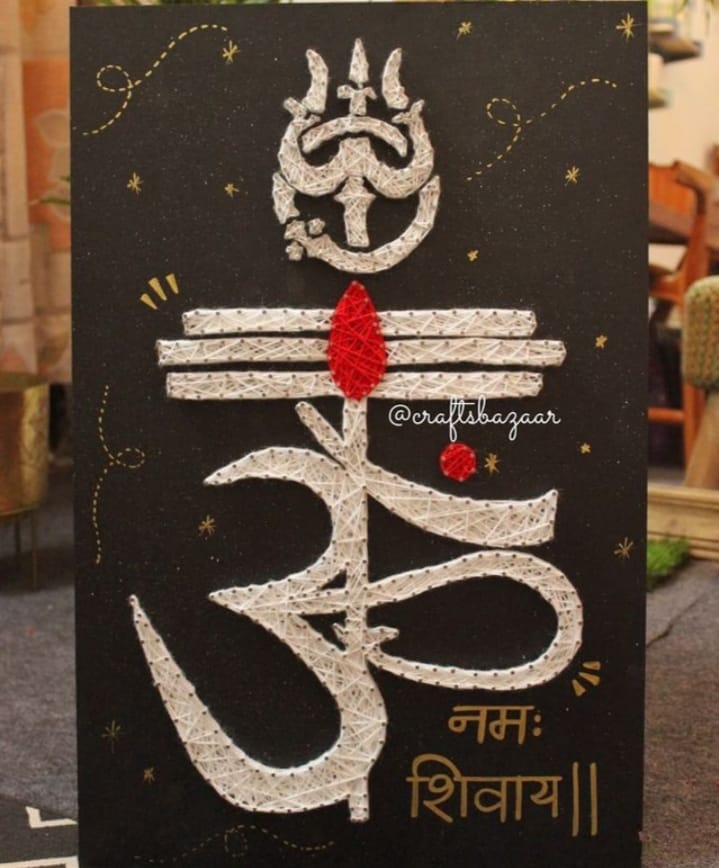 @craftsbazaar
ॐ
नमः
शिवाय||